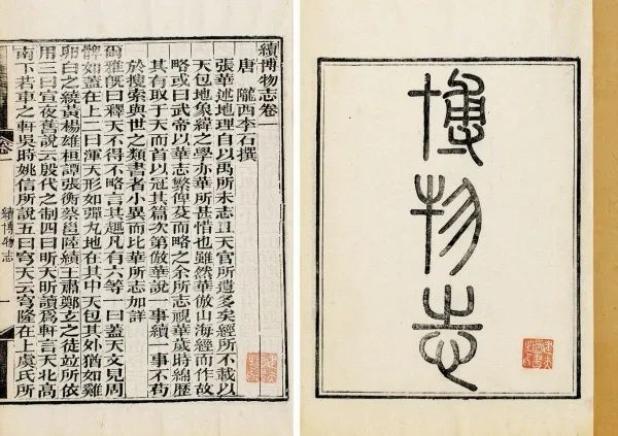 博物志
續博物志卷一
唐 隴西李石撰
張華述地理自以禹所未志且天官所遺多矣經所不載以
天包地象緯之學亦華所甚惜也雖然華倣山海經而作故
略或曰武帝以華志繁俾芟而略之余所志視華歲時綿歷
其有取于天而首以冠其篇次第倣華說一事續一事不苟
於搜索與世之類書者小異而比華所志加詳
爾雅旣曰釋天不得不略言其趣凡有六等一曰蓋天文見周
髀如蓋在上二曰渾天形如彈丸地在其中天包其外猶如雞
卵白之繞黃楊雄桓譚張衡蔡邕陸績王肅鄭玄之徒竝所依
用三曰宣夜舊說云殷代之制四曰昕天昕讀爲軒言天北高
南下若車之軒吳時姚信所說五曰穹天云穹隆在上虞氏所
續博物志
一